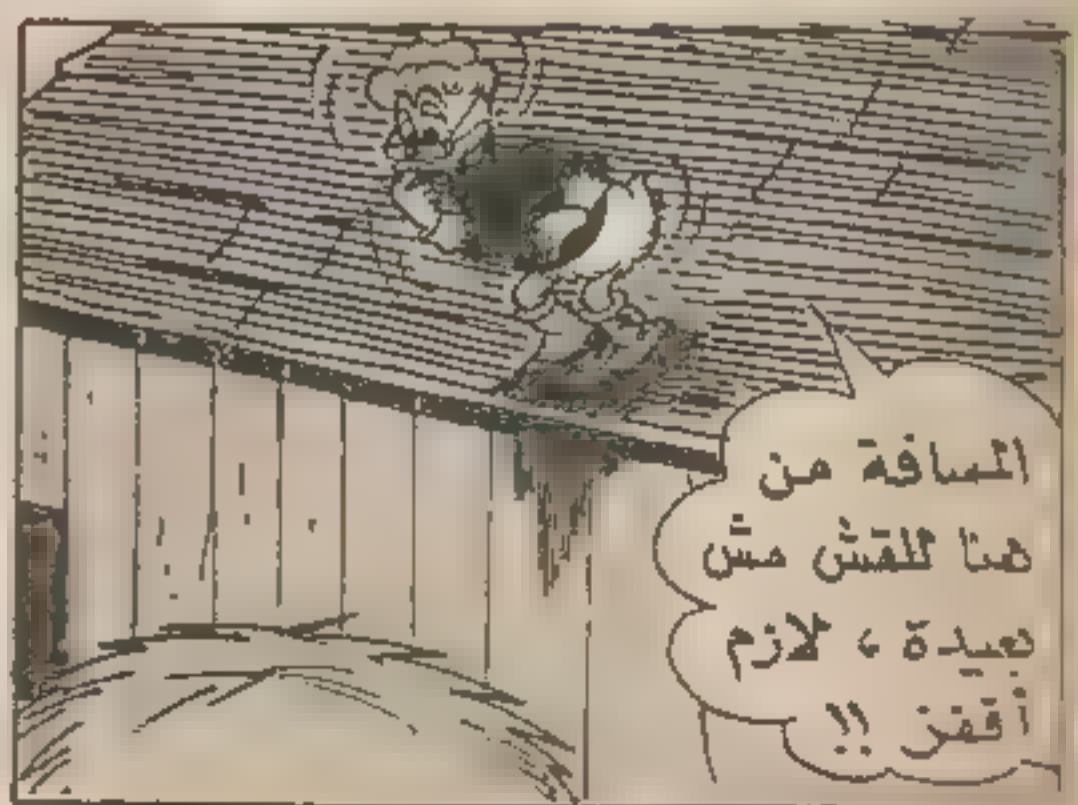 المسافة من
هنا للقش مش
بعيدة ، لازم
أقفز !!